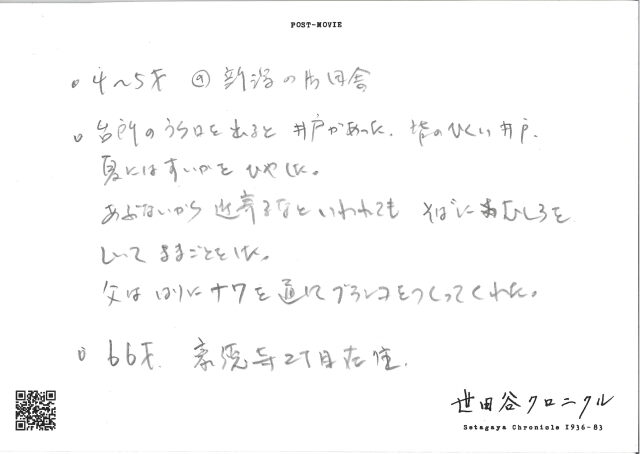 POST-MOVIE
4〜5才 @新潟の片田舎
台所のうら口を出ると 井戸があった。背のひくい井戸。
夏にはすいかをひやした。
あぶないから 近寄るなといわれても そばにむしろを
しいて ままごとをした。
父は はりにナワを通してブランコをつくってくれた。
66才. 豪徳寺2丁目在住.
世田谷クロニクル
Setagaya Chronicle 1936-83